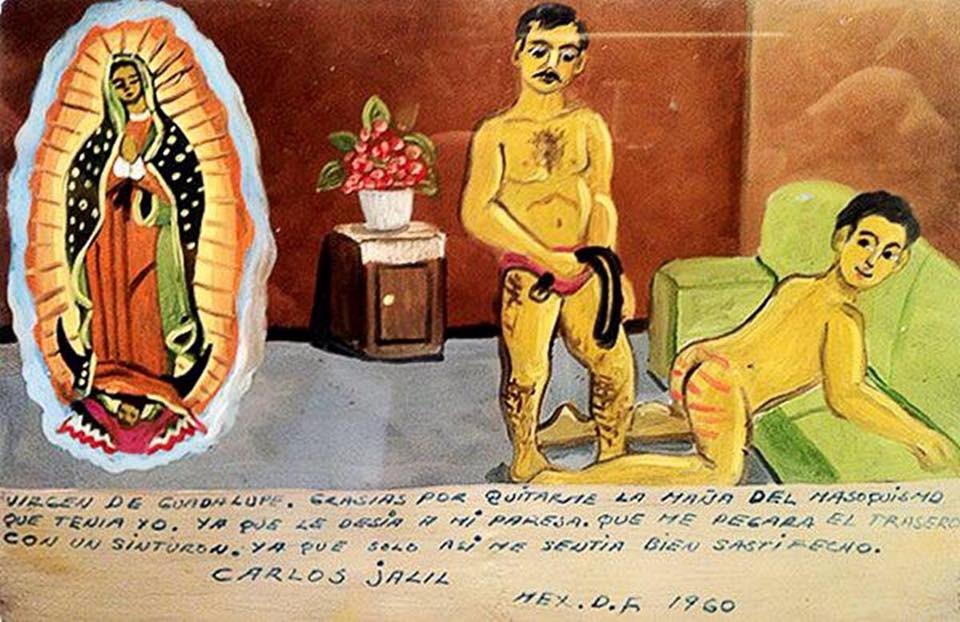 VIRGEN DE GUADALUPE. GRASIAS POR QUITARME LA MAÑA DEL MASOQUISMO
QUE TENIA YO. YA QUE LE DESIA A MI PAREJA. QUE ME PEGARA EL TRASERO
CON UN SINTURON. YA QUE SOLO ASI ME SENTIA BIEN SASTIFECHO.
CARLOS JALIL
MEX. D.F. 1960